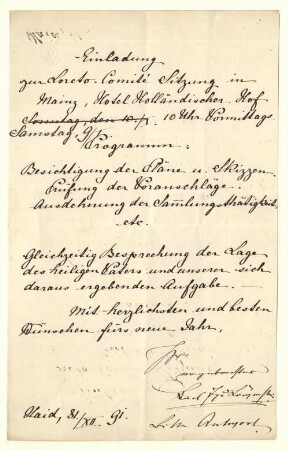 Einladung
zur Loreto-Comité Sitzung in
Mainz, Hotel Holländischer Hof
Sonntag, den 10./I. 10 Uhr Vormittags
Samstag, 9/I
Programm:
Besichtigung der Pläne u. Skizzen.
Prüfung der Voranschläge.
Ausdehnung der Sammlungsthätigkeit
etc.
Gleichzeitig Besprechung der Lage
des heiligen Vaters und unserer sich
daraus ergebenden Aufgabe. —
Mit herzlichsten und besten
Wünschen fürs neue Jahr,
Ihr
Karl Fst Löwenstein
Haid, 31/XII. 91.
Bitte Antwort.